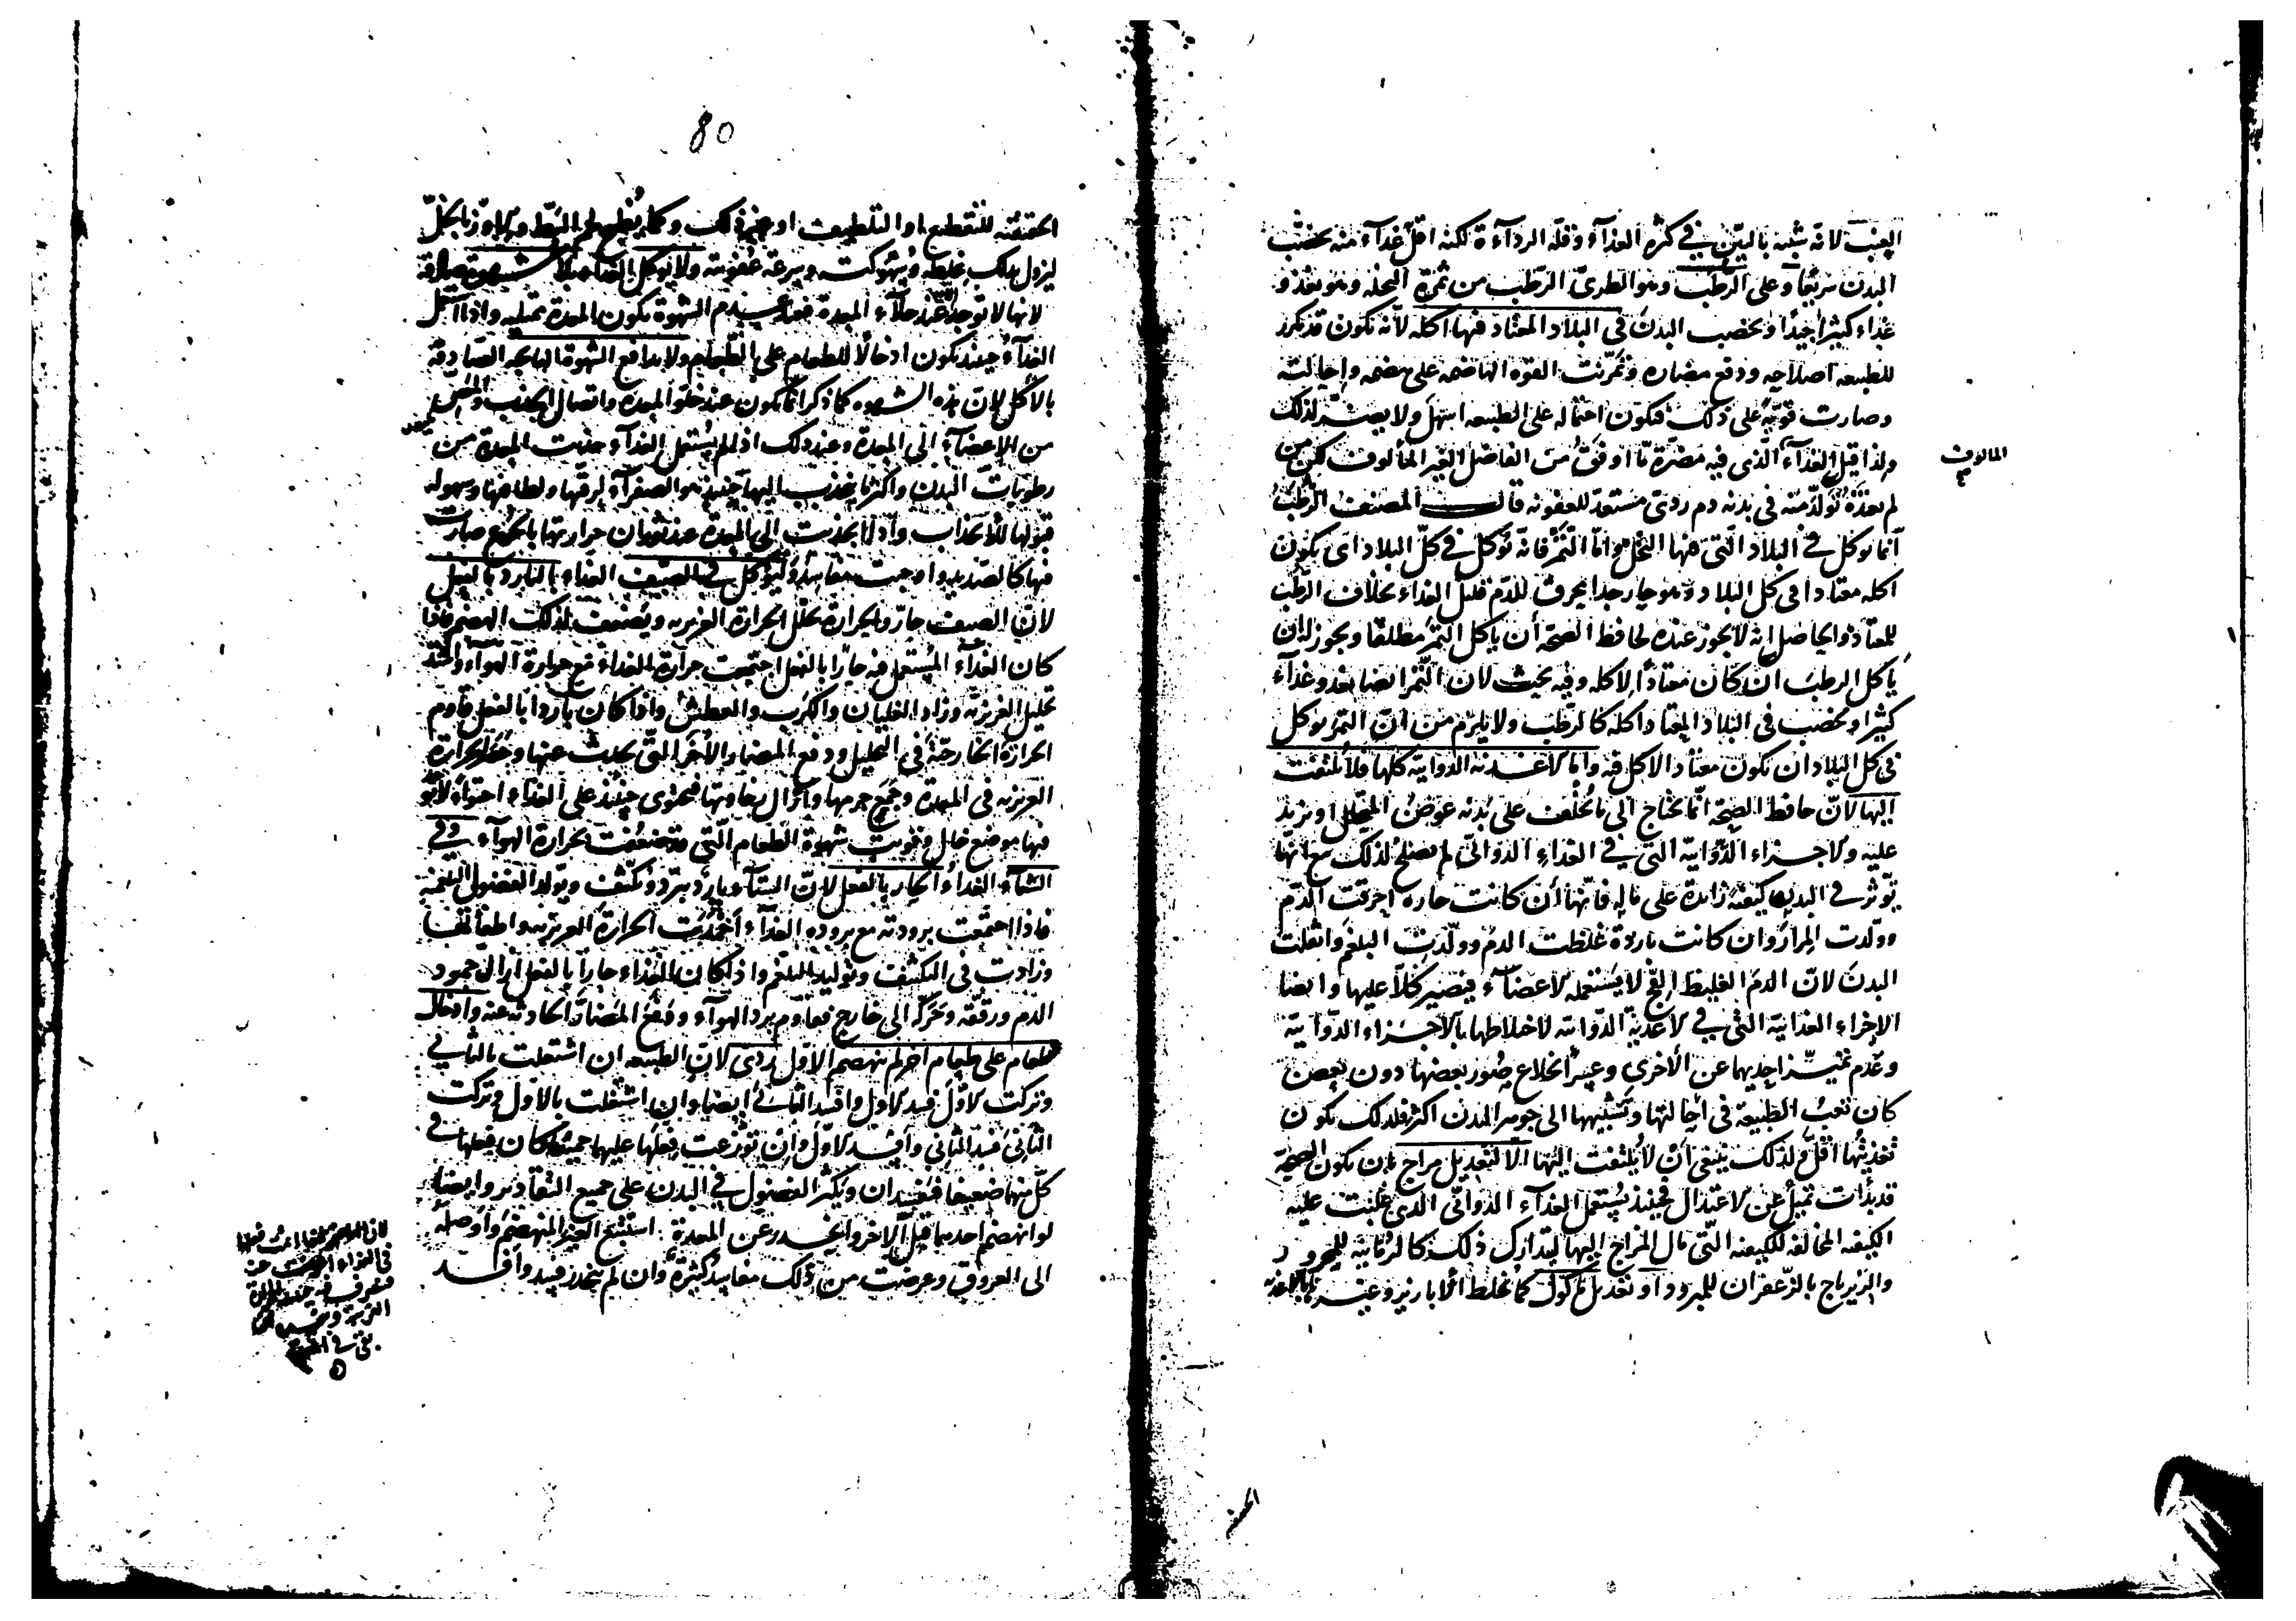 العنب لانه شبه بالتين في كثرة الغذآء وقلة الردآءة لكنه اقل غذآء منه يخصب
البدن سريعًا وعلى الرطب وهو الطرىّ الرطب من ثمرة النخلة وهو يغذو
غذاء كثيرًا جيدًا ويخصب البدن في البلاد المعتاد فيها اكله لانه يكون قد تكرر
للطبيعه اصلاحه ودفع مضاره وتمرنت القوه الهاضمه على هضمه واحالته
وصارت قويّة على ذلك فتكون احتماله على الطبيعه اسهل ولا يصير لذلك
ولذا قيل الغذآء الذى فيه مضرّة مّا اوفق من الفاضل الغير المألوف لكن من
المالوف
لم يعتده تولّد منه في بدنه دم ردىّ مستعدّ للعفونه قال المصنف الرطب
انما يوكل في البلاد التى فيها النخل وامّا التمر فانه يؤكل في كلّ البلاد اى يكون
اكله معتادا في كل البلاد وهو حار جدا يحرق للدم قليل الغذاء بخلاف الرطب
للمعتاد والحاصل انه لا يجوز عنده لحافظ الصحة أن ياكل التمر مطلقًا ويجوز لان
يأكل الرطب ان كان معتادًا لاكله وفيه بحث لان التمر ايضا يغذو غذآء
كثيرا ويخصب في البلاد المعتاد اكله كالرطب ولا يلزم من ان التمر يوكل
في كل البلاد ان يكون معتاد الاكل فيه وامّا الاغذية الدوائية كلها فلا يلتفت
اليها لانّ حافظ الصحة انّما يحتاج الى ما يخلف على بدنه عوض المتحلل او يزيد
عليه والاجزاء الدّوائيّة التى في الغذاء الدوائى لم يصلح لذلك مع انها
تؤثر في البدن كيفية زائدة على ماله فانّها أن كانت حاره احرقت الدّم
وولّدت المرار وان كانت باردة غلظت الدم وولّدت البلغم واثقلت
البدن لانّ الدم الغليظ الفج لا يستعمله الاعضآء فيصير كلّا عليها وايضا
الاجزاء الغذائية التى في الاغذية الدّوائية لاختلاطها بالاجزاء الدّوائية
وعدم تميّز احديهما عن الأخرى وعسر انخلاع صور بعضها دون بعض
كان تعب الطبيعة في احالتها وتشبيهها الى جوهر البدن اكثر فلذلك يكون
تغذيتها اقلّ ولذلك ينبغى أن لا يلتفت اليها الّا لتعديل مزاج بان يكون الصحة
قد بدأت تميل عن الاعتدال فحينئذ يستعمل الغذآء الدوائى الذى غلبت عليه
الكيفيه المخالفه للكيفيه التى مال المزاج اليها ليتدارك ذلك كالرمّانية للمحرور
والزيرباج بالزعفران للمبرود او تعديل مأكول كما يخلط الابازير وغيرها بالاغذية
80
الحقيقيّه للتقطيع او التلطيف او غير ذلك وكما يطبخ لحم البط والاوز بالخلّ
ليزول بذلك غلظه وسهوكته وسرعة عفونته ولا يؤكل الغذاء بلا شهوة صادقة
لانها لا توجد عند خلآء المعدة فعند عدم الشهوة يكون المعدة ممتليه واذا اكل
الغذآء حينئذ يكون ادخالًا للطعام على الطعام ولا يدافع الشهوة الهائجه الصادقة
بالأكل لانّ هذه الشهوه كما ذكر انّما يكون عند خلوّ المعدة واتصال الجذب والمص
من الاعضآء الى المعدة وعند ذلك اذا لم يستعمل الغذآء جذبت المعدة من
رطوبات البدن واكثر ما يجذب اليها حينئذ هو الصفرآء لرقّتها ولطافتها وسهوله
قبولها للانجذاب واذا انجذبت الى المعدة عند ثوران حرارتها بالجوع صارت
فيها كالصّديد واوجبت مفاسد وليؤكل في الصيف الغذاء البارد بالفعل
لانّ الصيف حارّ والحرارة تحلّل الحرارة الغريزيه ويضعف لذلك الهضم فاذا
كان الغذآء المستعمل فيه حارّا بالفعل اجتمعت حرارة الغذاء مع حرارة الهوآء واشتدّ
تحليل الغريزيّة وزاد الغليان والكرب والعطش واذا كان باردا بالفعل قاوم
الحرارة الخارجيّة في التحليل ودفع المضار الأخر التى يحدث عنها وحقن الحرارة
الغريزيه في المعدة وجمّع جرمها وازال رخاوتها فيحتوى حينئذ على الغذاء احتواء لا يبقى
فيها موضع خال وقويت شهوة الطعام التى قد ضعفت بحرارة الهوآء وفي
الشتآء الغذاء الحار بالفعل لانّ الشتآء بارد يبرّد ويكثّف ويولد الفضول البلغميّة
فاذا اجتمعت برودته مع بروده الغذآء أخمدت الحرارة الغريزيه واطفأتها
وزادت في التكثيف وتوليد البلغم واذا كان الغذاء حارا بالفعل ازال جمود
الدم ورقّقه وحرّكه الى خارج فقاوم برد الهوآء ودفع المضارّ الحادثه عنه وادخال
طعام على طعام اخر لم ينهضم الاوّل ردى لانّ الطبيعه ان اشتغلت بالثانى
وتركت الاوّل فسد الاول وافسد الثانى ايضا وان اشتغلت بالاول وتركت
الثانى فسد الثاني وافسد الاوّل وان توزعت فعلها عليهما جميعًا كان فعلها في
كلّ منهما ضعيفا فيفسدان ويكثر الفضول في البدن على جميع التقادير وايضا
لو انهضم احدهما قبل الاخر وانحدر عن المعدة استتبع الغير المنهضم واوصله
الى العروق وعرضت من ذلك مفاسد كثيرة وان لم ينحدر فسد وافسد